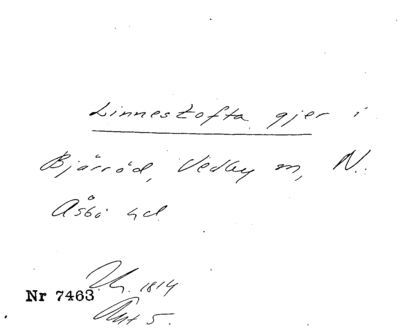 Linnestofta gjer i
Bjärröd, Vedby m, N.
Åsbo hd
1814
Nr 7463
Akt 5.